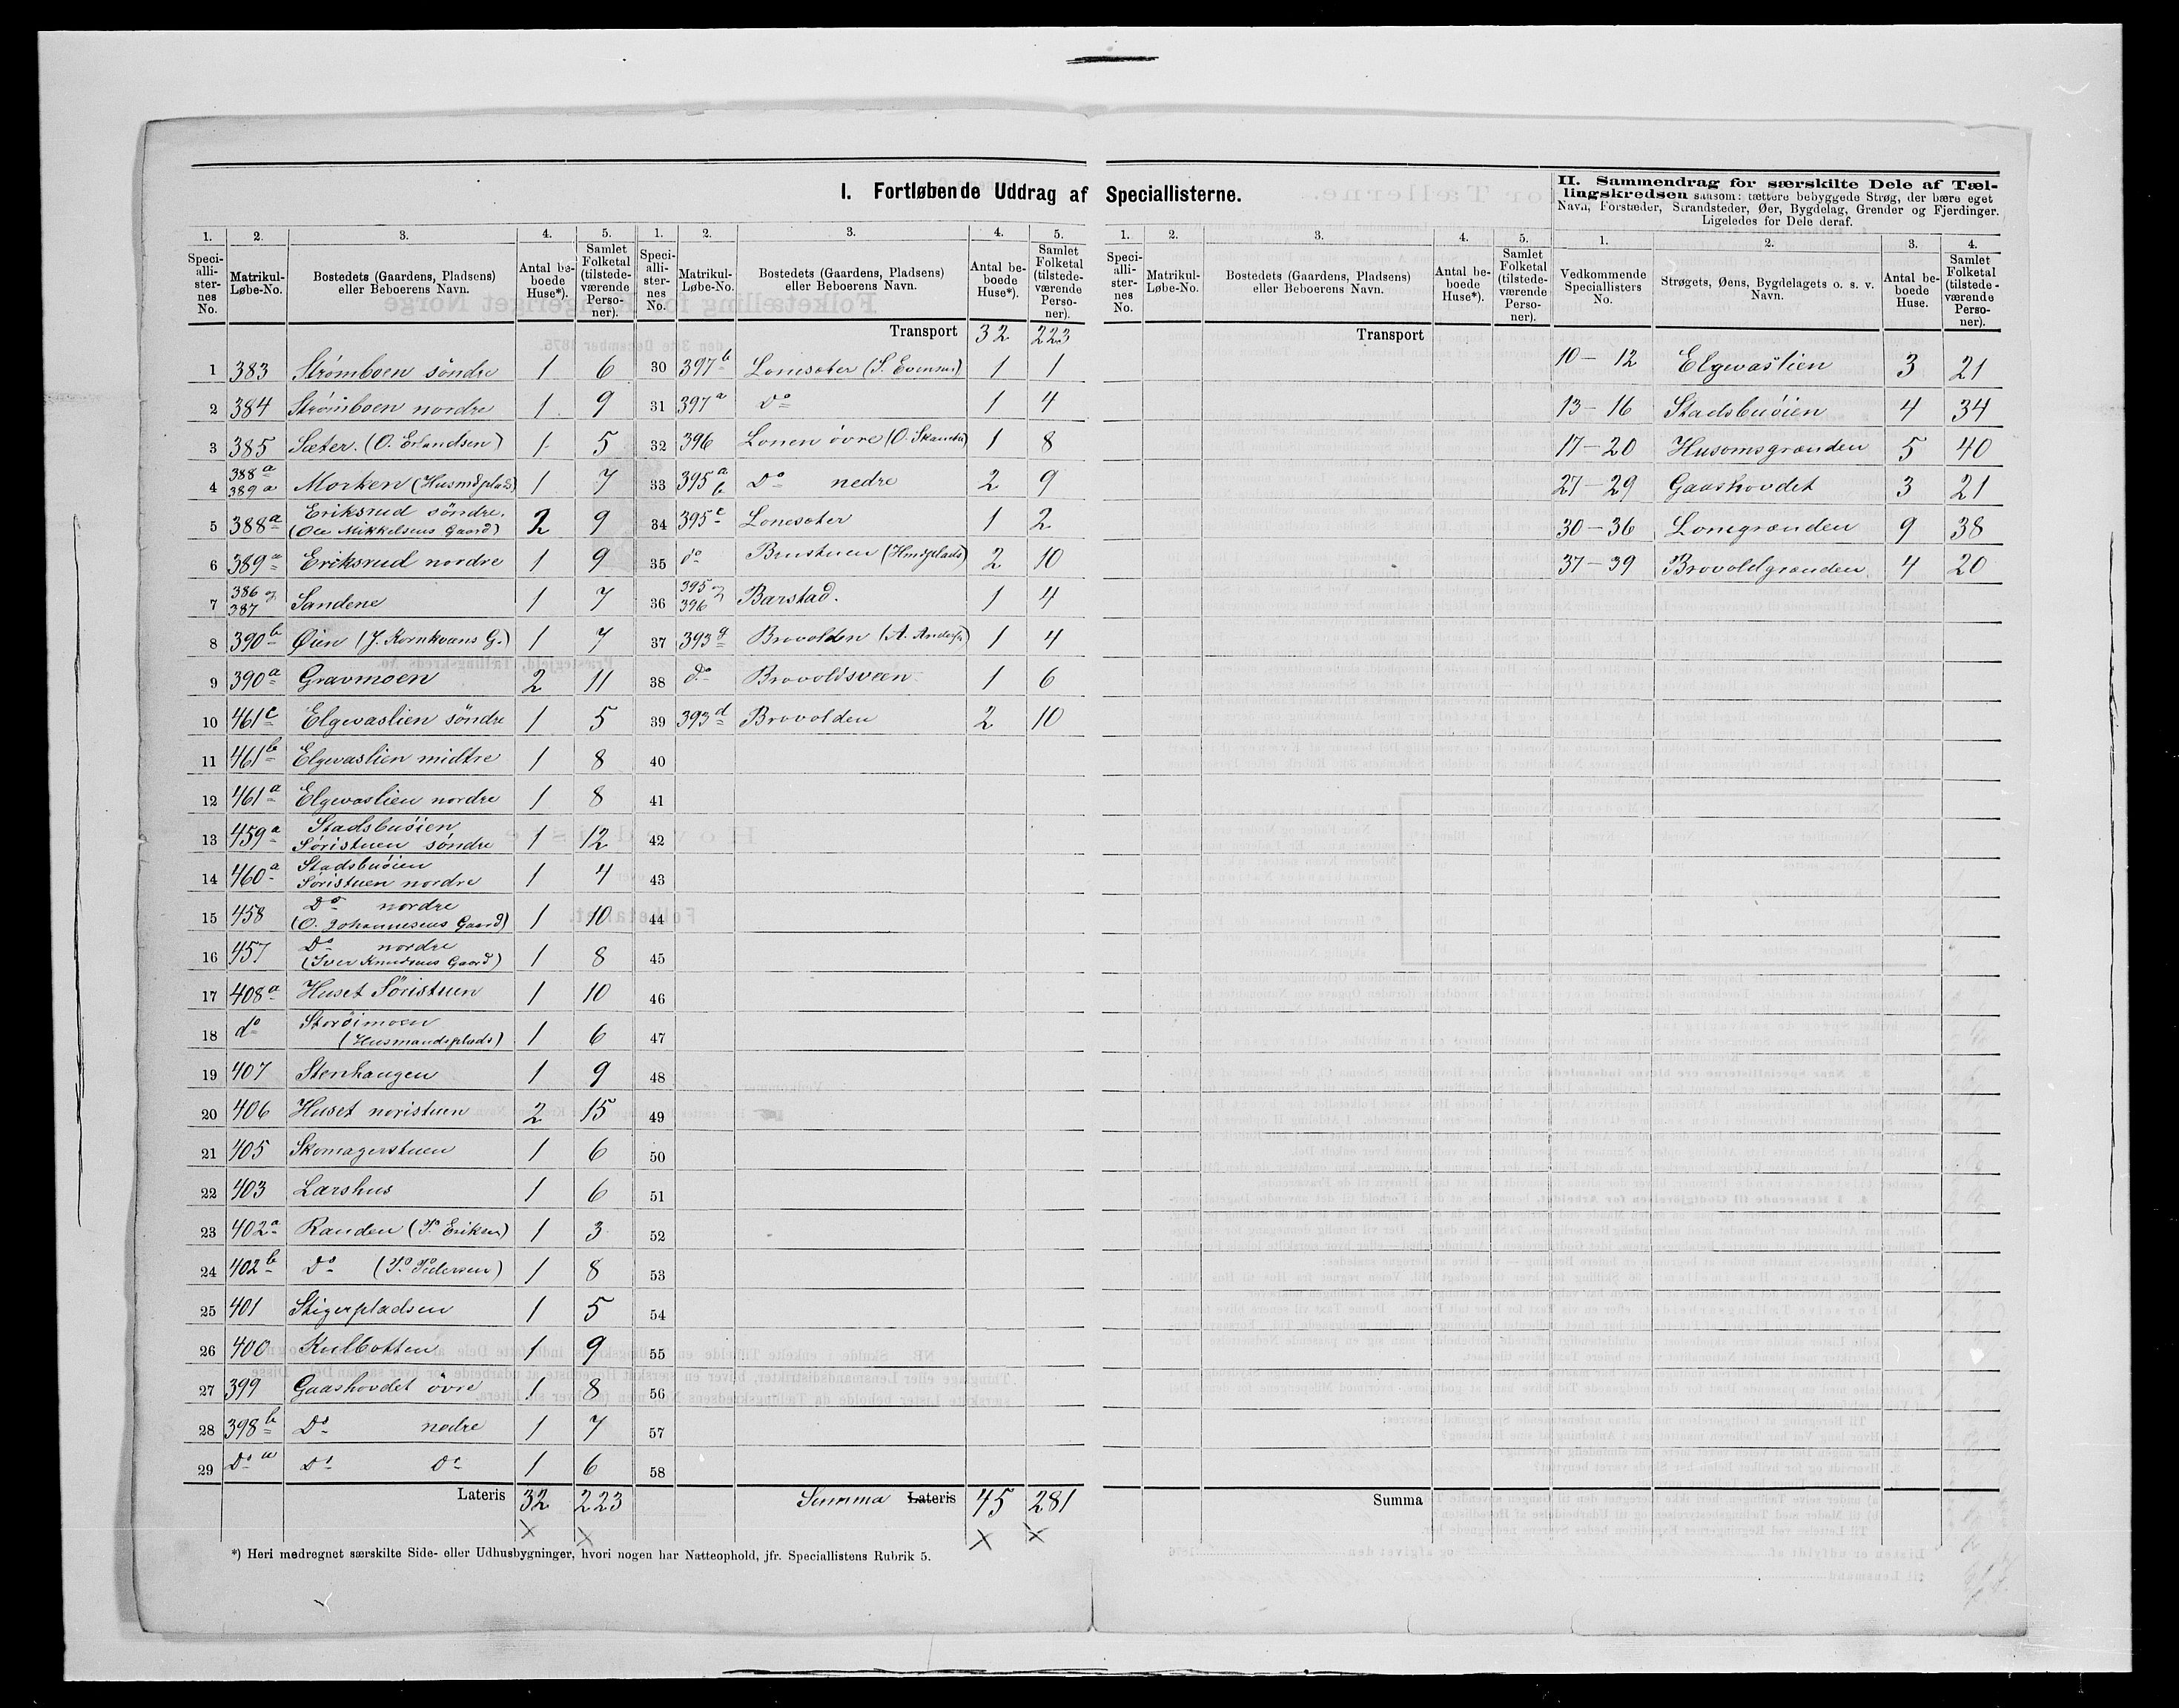 I. Fortløbende Uddrag af Speciallisterne.
1. 2. 3. 4. 5.
Specialli-sternes No. Matrikul-Løbe-No. Bostedets (Gaardens, Pladsens) eller Beboerens Navn. Antal beboede Huse*). Samlet Folketal (tilstedeværende Personer).
1 383 Strømboen söndre 1 6
2 384 Strømboen nordre 1 9
3 385 Sæter. (O. Erlandsen) 1 5
4 388a 389a Morken (Husmdplads) 1 7
5 388a Eriksrud söndre. (Ole Mikkelsens Gaard) 2 9
6 389a Eriksrud nordre 1 9
7 386 og 387 Sandene 1 7
8 390b Øien (J. Kornkvæns G.) 1 7
9 390a Gravmoen 2 11
10 461c Elgevaslien söndre 1 5
11 461b Elgevaslien midtre 1 8
12 461a Elgevaslien nordre 1 8
13 459a Stadsbuöien Söristuen söndre 1 12
14 460a Stadsbuöien Söristuen nordre 1 4
15 458 Do nordre (O. Johannesens Gaard) 1 10
16 457 Do nordre (Iver Knudsens Gaard) 1 8
17 408a Huset Söristuen 1 10
18 do Storöimoen (Husmandsplads) 1 6
19 407 Stenhaugen 1 9
20 406 Huset noristuen 2 15
21 405 Skomagerstuen 1 6
22 403 Larshus 1 6
23 402a Randen (P. Eriksen) 1 3
24 402b Do (P. Pedersen) 1 8
25 401 Stigerpladsen 1 5
26 400 Kulbotten 1 9
27 399 Gaashovdet övre 1 8
28 398b Do nedre 1 7
29 Do a Do Do 1 6
Lateris 32 223
1. 2. 3. 4. 5.
Specialli-sternes No. Matrikul-Løbe-No. Bostedets (Gaardens, Pladsens) eller Beboerens Navn. Antal beboede Huse*). Samlet Folketal (tilstedeværende Personer).
Transport 32 223
30 397b Lonesæter (S. Evensen) 1 1
31 397a Do 1 4
32 396 Lonen övre (O. ) 1 8
33 395a b Do nedre 2 9
34 395c Lonesæter 1 2
35 do Brustuen (Hmdplads) 2 10
36 395 og 396 Barstad. 1 4
37 393g Brovolden (A. Anders) 1 4
38 do Brovoldsveen 1 6
39 393d Brovolden 2 10
40
41
42
43
44
45
46
47
48
49
50
51
52
53
54
55
56
57
58
Summa Lateris 45 281
*) Heri medregnet særskilte Side- eller Udhusbygninger, hvori nogen har Natteophold, jfr. Speciallistens Rubrik 5.
1. 2. 3. 4. 5.
Specialli-sternes No. Matrikul-Løbe-No. Bostedets (Gaardens, Pladsens) eller Beboerens Navn. Antal beboede Huse*). Samlet Folketal (tilstedeværende Personer).
Transport
Summa
II. Sammendrag for særskilte Dele af Tællingskredsen saasom: tættere bebyggede Strøg, der bære eget Navn, Forstæder, Strandsteder, Øer, Bygdelag, Grender og Fjerdinger. Ligeledes for Dele deraf.
1. 2. 3. 4.
Vedkommende Speciallisters No. Strøgets, Øens, Bygdelagets o. s. v. Navn. Antal beboede Huse. Samlet Folketal (tilstedeværende Personer).
10 - 12 Elgevaslien 3 21
13 - 16 Stadsbuöien 4 34
17 - 20 Husomsgrænden 5 40
27 - 29 Gaashovdet 3 21
30 - 36 Lonegrænden 9 38
37 - 39 Brovoldgrænden 4 20